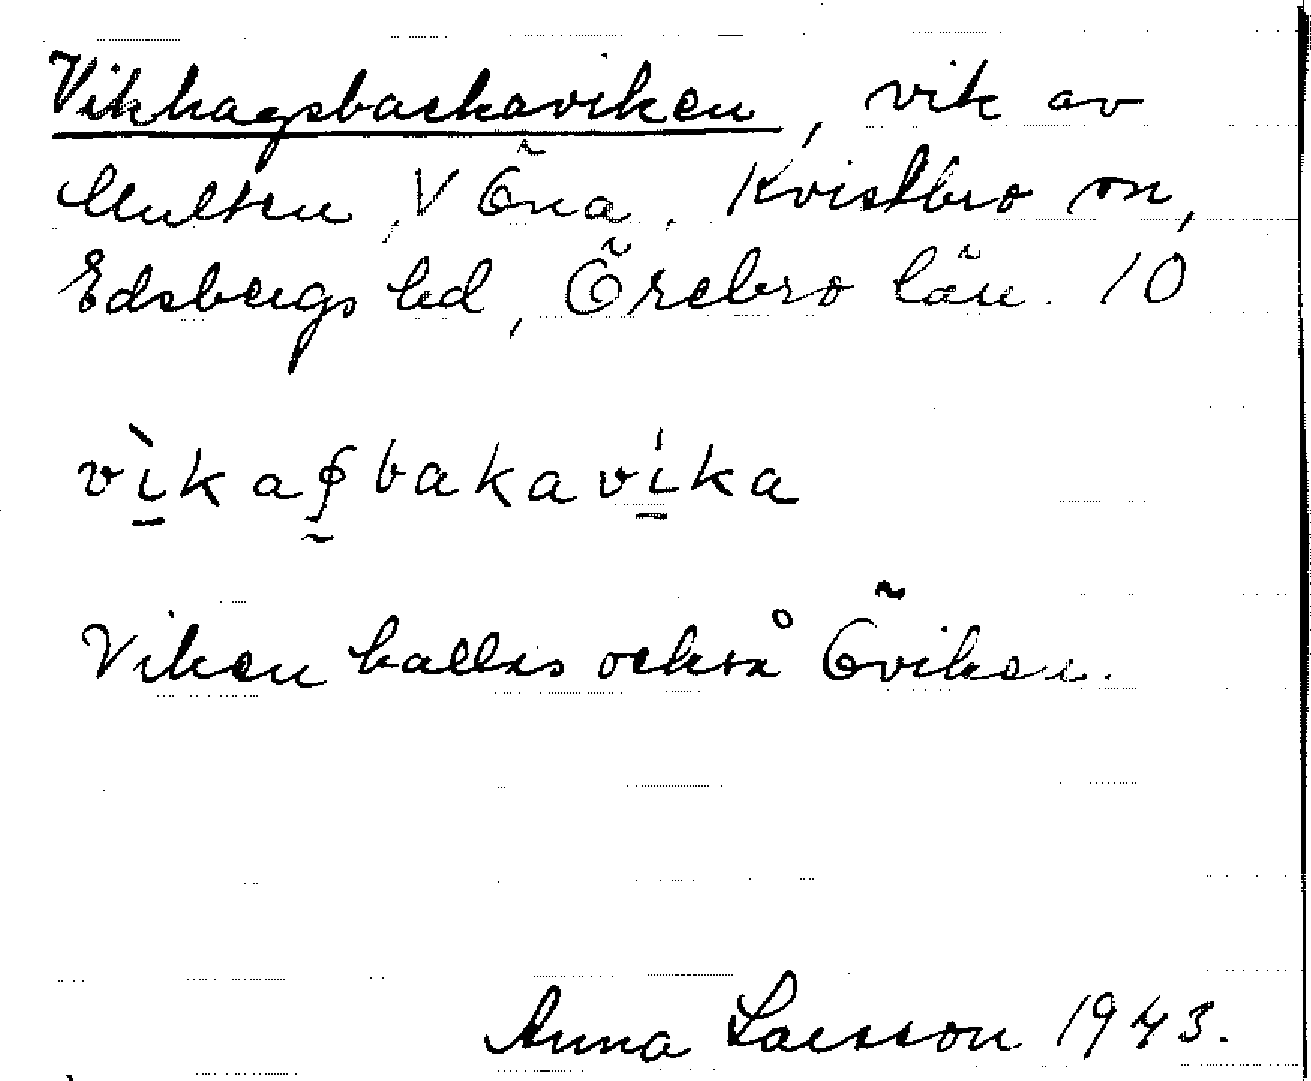 Vikhagsbackaviken, vik av
Multen, V Öna, Kvistbro sn,
Edsbergs hd, Örebro län. 10
vìkaꞩbakavíka
Viken kallas också Öviken.
Anna Larsson 1943.